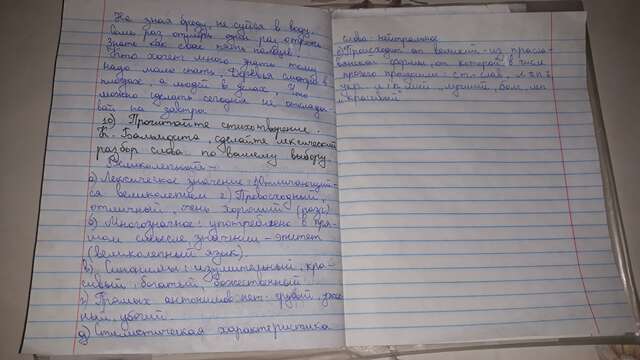 Не зная броду, не суйся в воду.
Семь раз отмерь один раз отрежь
Знать как свои пять пальцев.
Кто хочет много знать тому
надо мало спать, Деревья смотри в
плодах, а людей в делах, Что
можно сделать сегодня не отклады-
вай на завтра
10) Прочитайте стихотворение.
К. Бальмонта, сделайте лексический
разбор слова по вашему выбору.
Великолепной –
а) Лексическое значение: 1) Отличающий-
ся великолепием 2) Превосходный,
отличный, очень хороший (разг)
б) Многозначное: употреблено в пря-
мом смысле, значении – эпитет
(великолепный язык)
в) Синонимы: изумительный, кра-
сивый, богатый, божественный
г) Прямых антонимов нет: грубый,
ный, убогий
д) Стилистическая характеристика
слова: нейтральное
е) Происходит от великий – из прасла-
вянской формы, от которой в числе
прочего произошли: ст. слав,
укр. и белый, лучший, бол.
и красивый